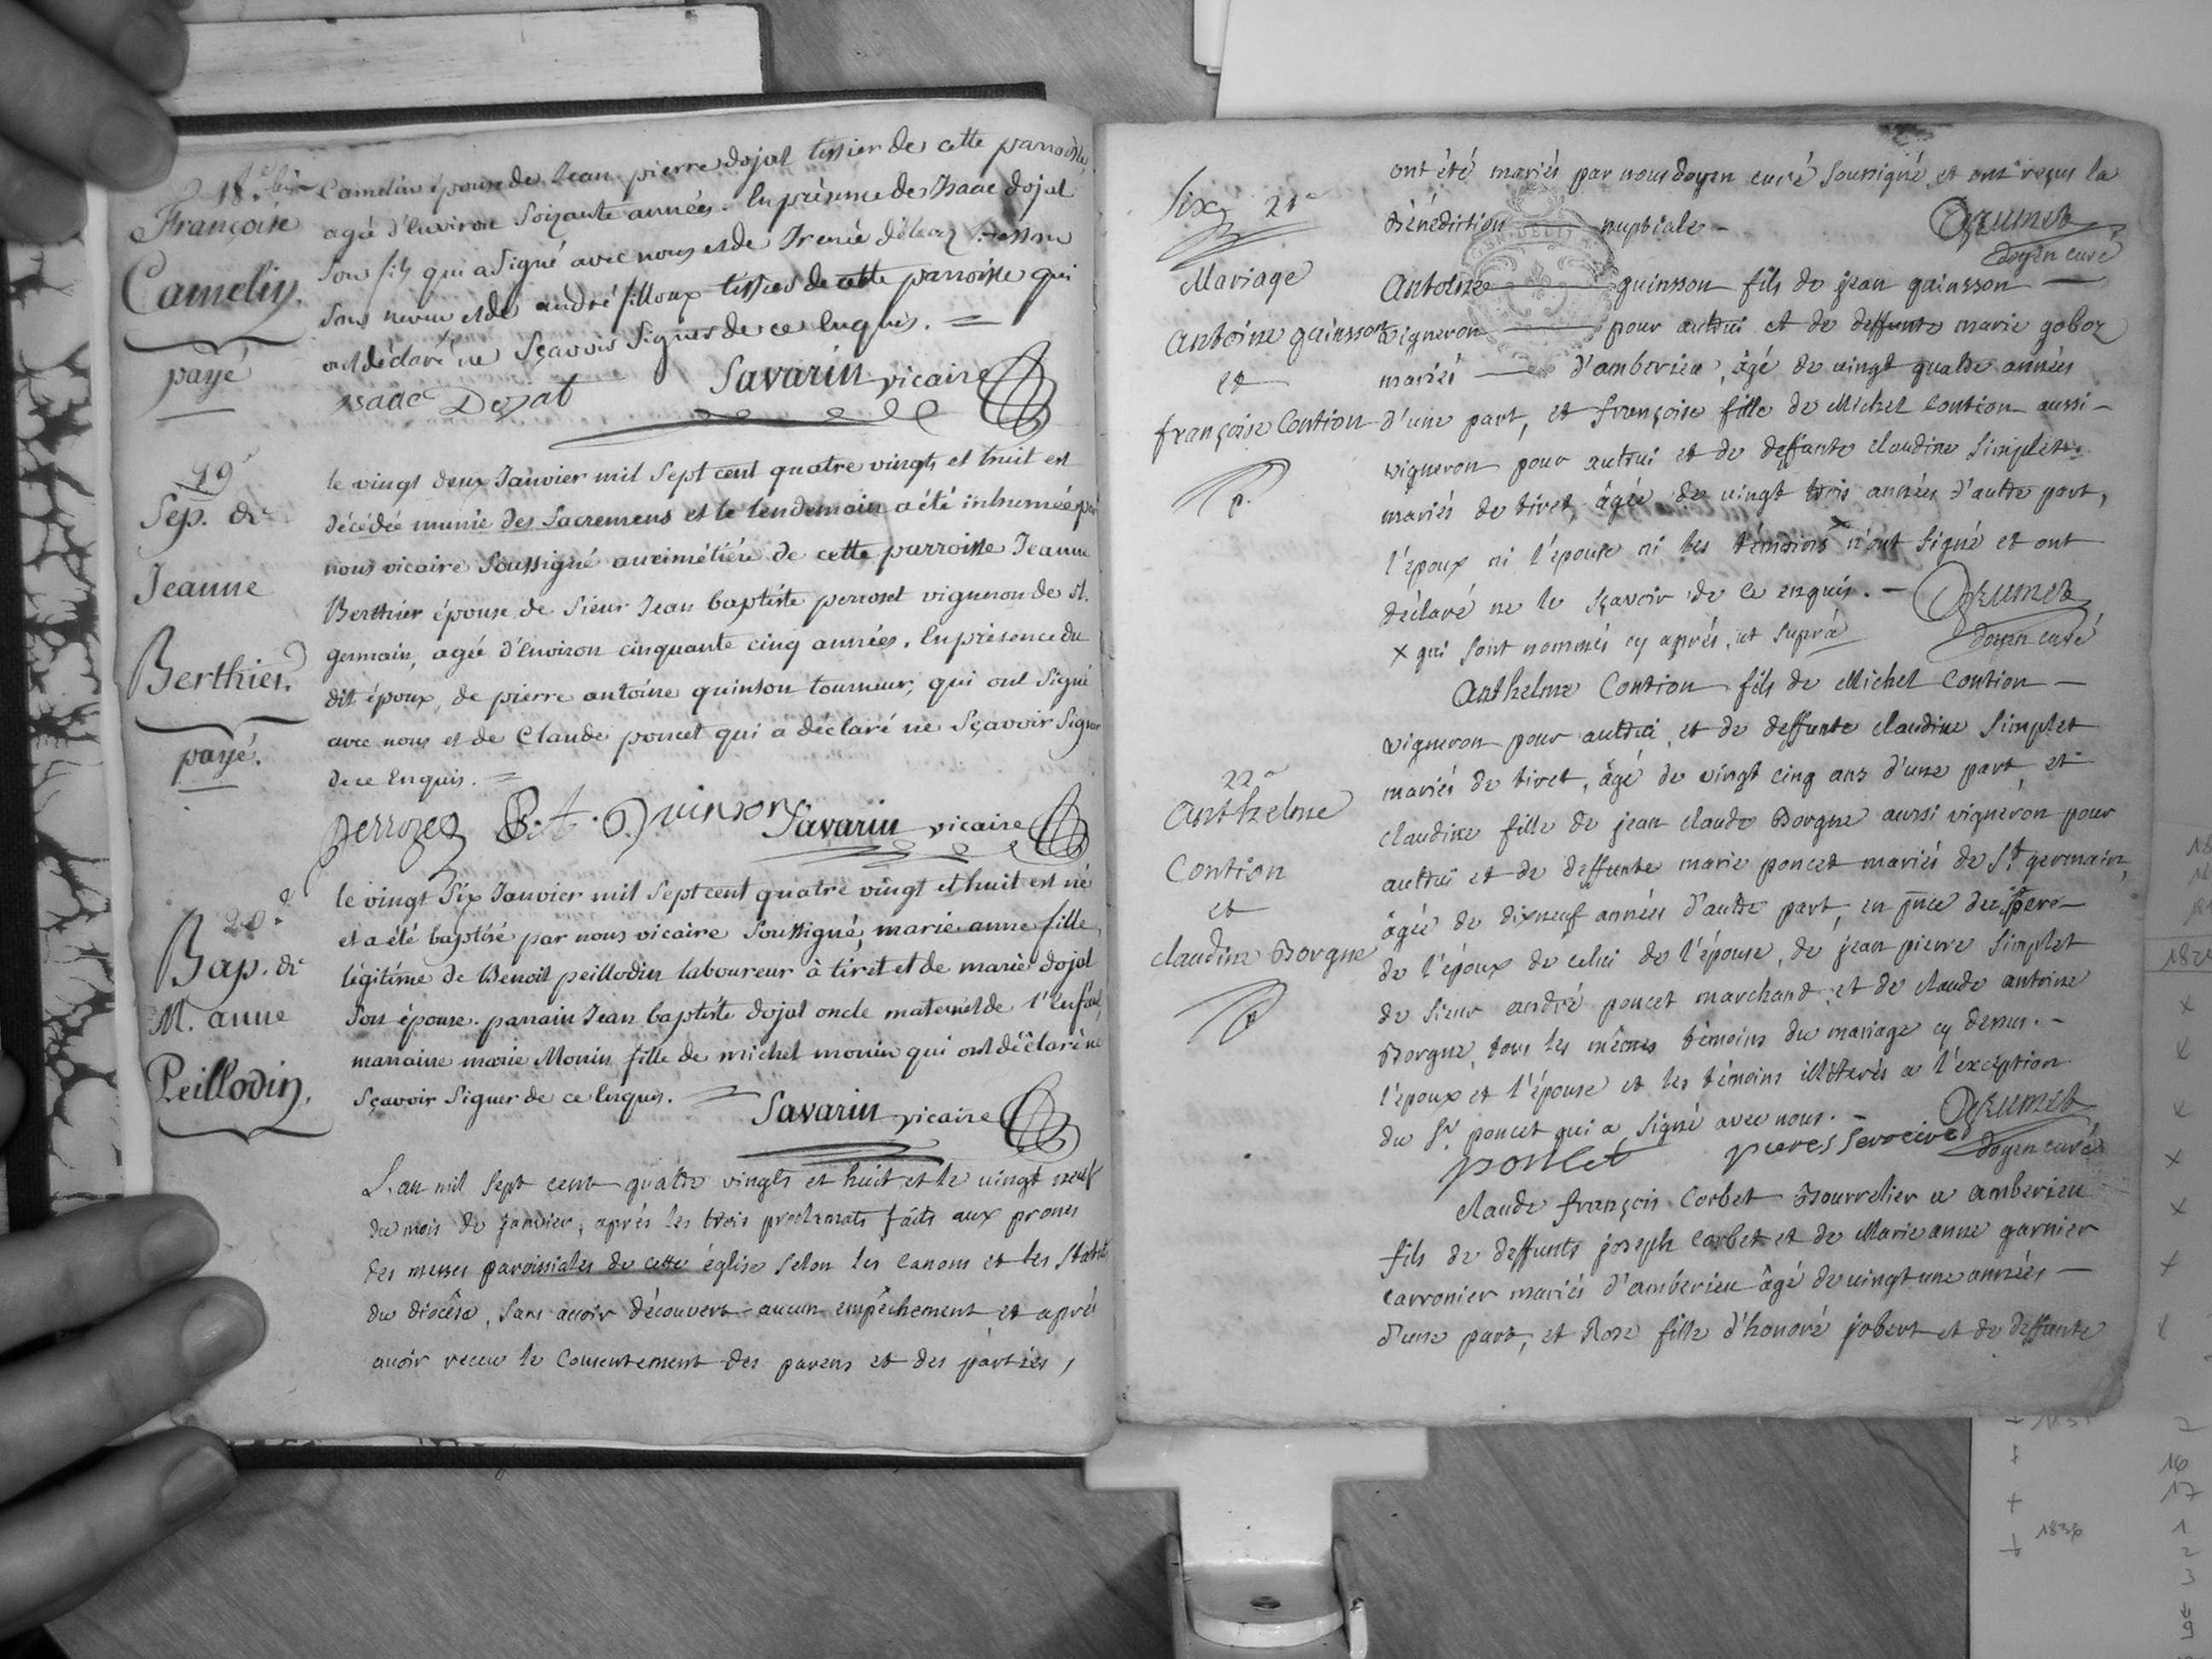 18.e
Françoise
Camelin.
payé
Camelin épouse de Jean pierre dojat tissier de cette parroisse,
agée d'Environ soixante années. En présence de Isaac dojat
son fils qui a signé avec nous et de
son neveu et de andré filloux tissier de cette parroisse qui
ont déclaré ne sçavoir signer de ce Enquis.
isaac Dojat Savarin vicaire
19e
Sep. de
Jeanne
Berthier.
payé.
le vingt deux Janvier mil sept cent quatre vingts et huit est
décédée munie des Sacremens et le lendemain a été inhumée par
nous vicaire soussigné au cimétière de cette parroisse Jeanne
Berthier épouse de sieur Jean baptiste perrozet vigneron de st.
germain, agée d'Environ cinquante cinq années. En présence du
dit époux, de pierre antoine quinson tourneur, qui ont signé
avec nous et de Claude poncet qui a déclaré ne sçavoir signer
de ce Enquis.
perrozet P. A. Quinson Savarin vicaire
20e
Bap. de
M. anne
Peillodin.
le vingt six Janvier mil sept cent quatre vingt et huit est né
et a été baptisé par nous vicaire soussigné, marie anne fille
légitime de Benoit peillodin laboureur à tiret et de marie dojat
son épouse. parrain Jean baptiste dojat oncle maternel de l'Enfant,
marraine marie Monin fille de michel monin qui ont déclaré ne
sçavoir signer de ce Enquis.
Savarin vicaire
L'an mil sept cent quatre vingts et huit et le vingt neuf
du mois de janvier, après les trois proclamats faits aux prones
des messes paroissiales de cette église selon les canons et les statuts
du diocèse, sans avoir découvert aucun empêchement et après
avoir receu le consentement des parens et des parties,
Six
21e
Mariage
Antoine quinsson
et
françoise Contion
ont été mariés par nous doyen curé soussigné et ont reçus la
Bénédiction nuptiale
doyen curé
Antoine quinsson fils de jean quinsson
vigneron pour autrui et de deffunte marie goboz
mariés d'amberieu, âgé de vingt quatre années
d'une part, et françoise fille de Michel Contion aussi
vigneron pour autrui et de deffunte claudine Simplet
mariés de tiret, âgée de vingt trois années d'autre part,
l'époux ni l'épouse ni les témoins x n'ont signé et ont
déclaré ne le sçavoir de ce enquis.
x qui sont nommés cy après, ut suprà
doyen curé
22e
Anthelme
Contion
et
claudine Borgne
Anthelme Contion fils de Michel Contion
vigneron pour autrui, et de deffunte claudine Simplet
mariés de tiret, âgé de vingt cinq ans d'une part, et
claudine fille de jean claude Borgne aussi vigneron pour
autrui et de deffunte marie poncet mariés de St. germain,
âgée de dixneuf années d'autre part, en pnce du père
de l'époux de celui de l'épouse, de jean pierre Simplet
de sieur andré poncet marchand et de claude antoine
Borgne, tous les mêmes témoins du mariage cy dessus.
l'époux et l'épouse et les témoins illiterés a l'exception
du Sr. poncet qui a signé avec nous.
poncet
doyen curé
claude françois Corbet Bourrelier a amberieu
fils de deffunts joseph Corbet et de Marie anne garnier
carronier mariés d'amberieu âgé de vingt une années
d'une part, et Rose fille d'honoré jobert et de deffunte
1836
16
17
1
2
3